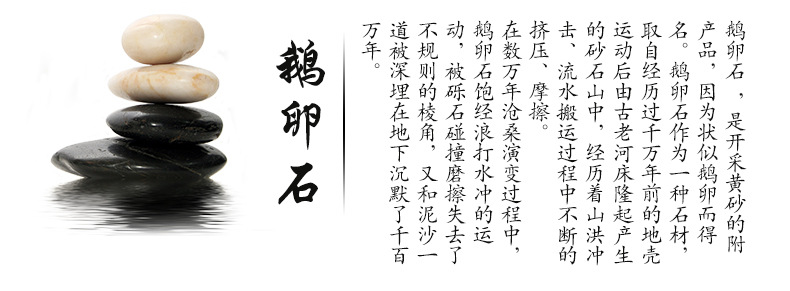 鹅卵石
鹅卵石，是开采黄砂的附
产品，因为状似鹅卵而得
名。鹅卵石作为一种石材，
取自经历过千万年前的地壳
运动后由古老河床隆起产生
的砂石山中，经历着山洪冲
击、流水搬运过程中不断的
挤压、摩擦。
在数万年沧桑演变过程中，
鹅卵石饱经浪打水冲的运
动，被砾石碰撞磨擦失去了
不规则的棱角，又和泥沙一
道被深埋在地下沉默了千百
万年。